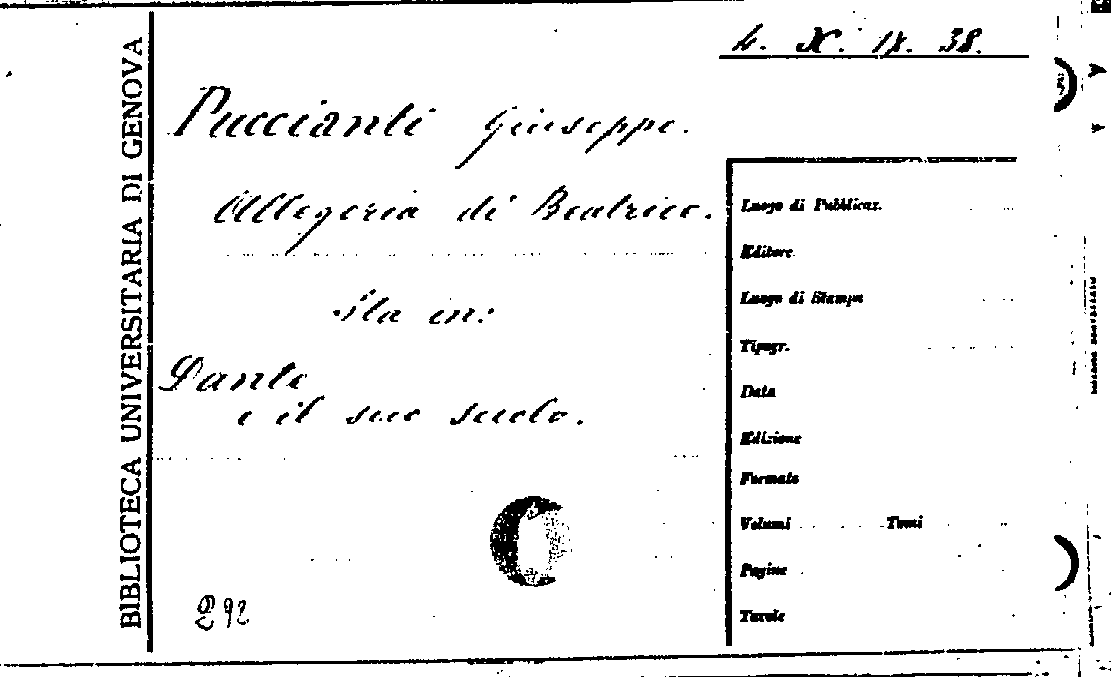 BIBLIOTECA UNIVERSITARIA DI GENOVA
4. X. IX. 38.
Puccianti Giuseppe.
Allegoria di Beatrice.
Sta in:
Dante
e il suo secolo.
292
Luogo di Pubblicaz.
Editore
Luogo di Stampa
Tipogr.
Data
Edizione
Formato
Volumi Tomi
Pagine
Tavole